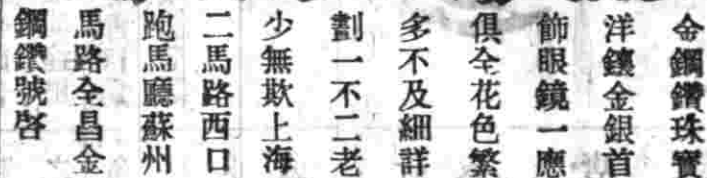 金鋼鑽珠寶
洋鑲金銀首
飾眼鏡一應
俱全花色繁
多不及細詳
劃一不二老
少無欺上海
二馬路西口
跑馬廳蘇州
馬路全昌金
鋼鑽號啓